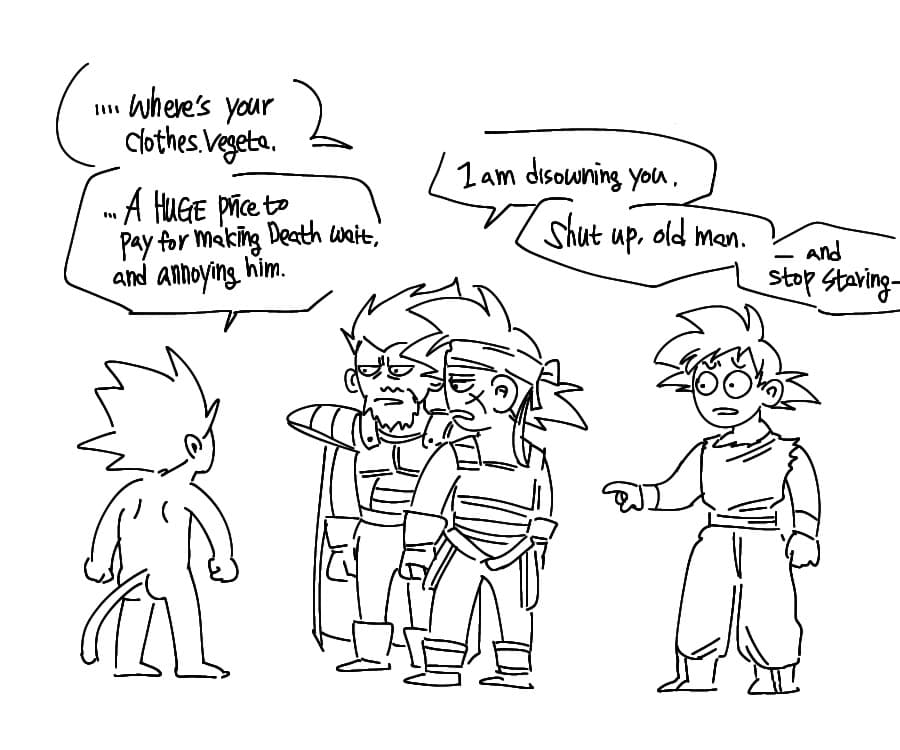 .... Where's your
clothes. Vegeta.
... A HUGE price to
pay for making Death wait,
and annoying him.
I am disowning you.
Shut up, old man.
— and
stop staring—